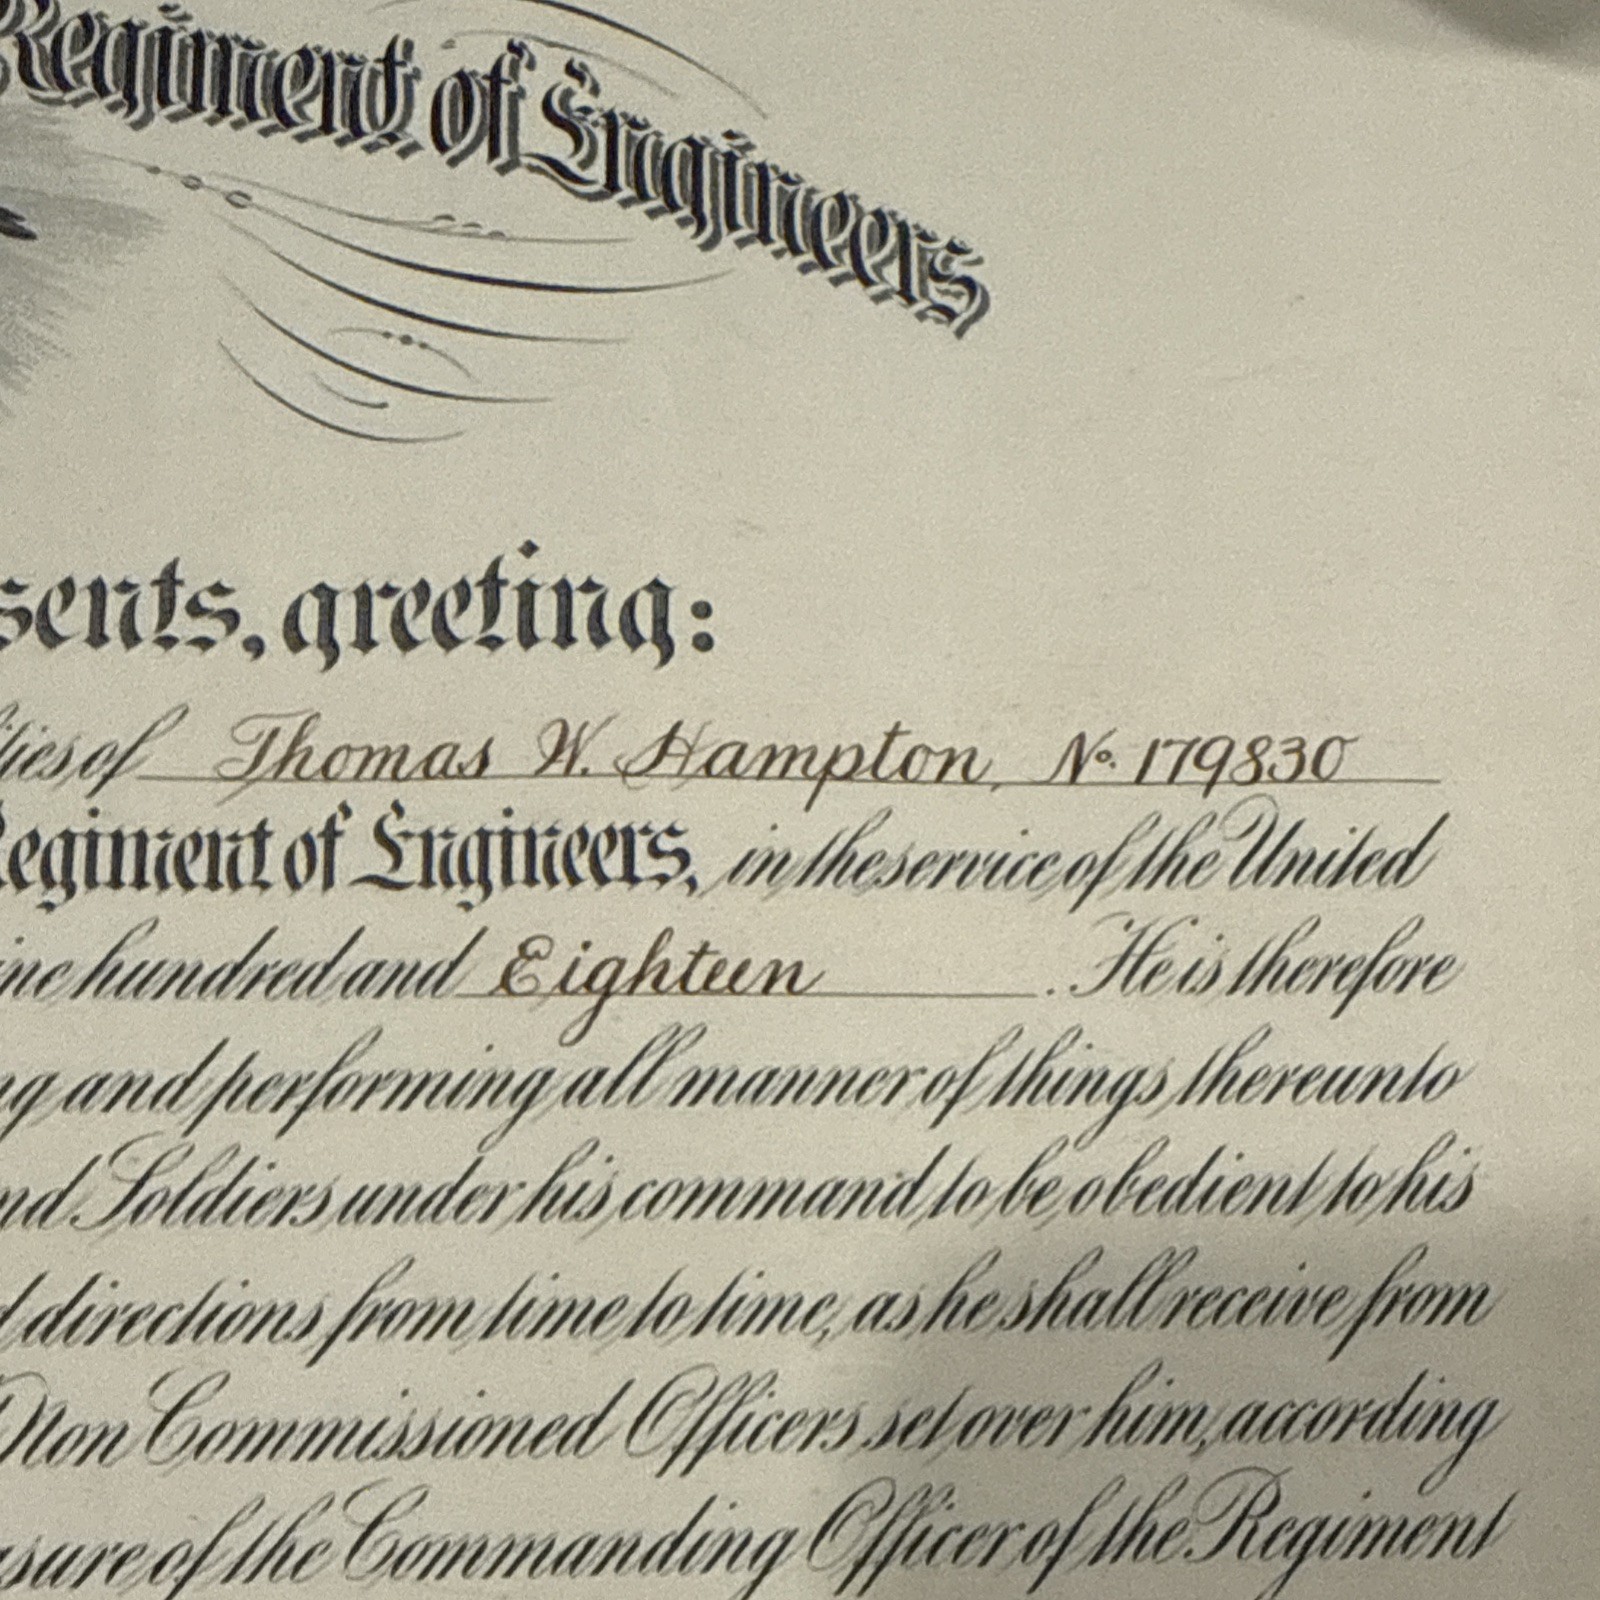 Regiment of Engineers
sents, greeting:
ities of Thomas W. Hampton, No. 179830
Regiment of Engineers, in the service of the United
ine hundred and Eighteen . He is therefore
ng and performing all manner of things thereunto
nd Soldiers under his command to be obedient to his
d directions from time to time, as he shall receive from
Non Commissioned Officers set over him, according
asure of the Commanding Officer of the Regiment